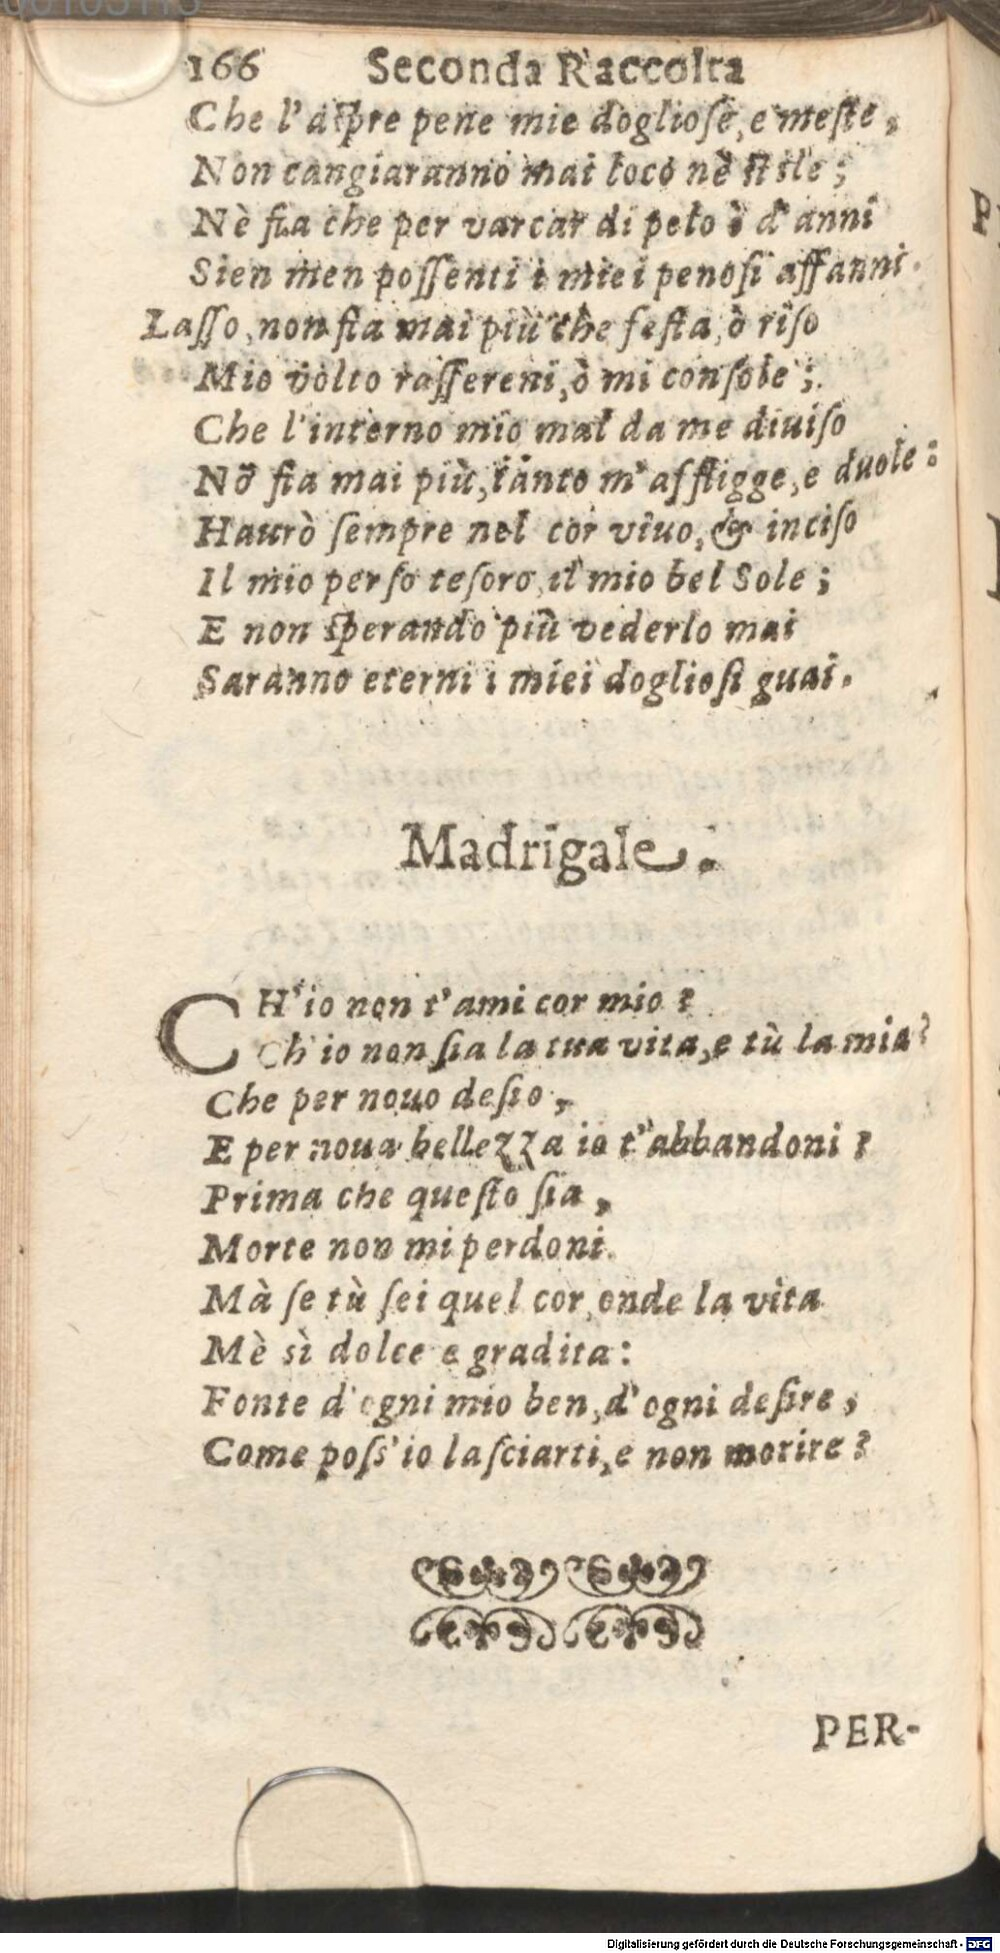 166 Seconda Raccolta
Che l'aſpre pene mie doglioſe, e meſte,
Non cangiaranno mai loco nè ſtile;
Nè fia che per varcar di pelo ò d'anni
Sien men poſſenti i miei penoſi affanni.
Laſſo, non fia mai più che feſta, ò riſo
Mio volto raſſereni, ò mi conſole;
Che l'interno mio mal da me diuiſo
Nõ fia mai più, tanto m'affligge, e duole:
Haurò ſempre nel cor viuo, & inciſo
Il mio perſo teſoro, il mio bel Sole;
E non ſperando più vederlo mai
Saranno eterni i miei doglioſi guai.
Madrigale.
CH'io non t'ami cor mio?
Ch'io non ſia la tua vita, e tù la mia?
Che per nouo deſio,
E per noua bellezza io t'abbandoni?
Prima che queſto ſia,
Morte non mi perdoni.
Mà ſe tù ſei quel cor, onde la vita
Mè sì dolce e gradita:
Fonte d'ogni mio ben, d'ogni deſire,
Come poſs'io laſciarti, e non morire?
PER-
Digitalisierung gefördert durch die Deutsche Forschungsgemeinschaft - DFG